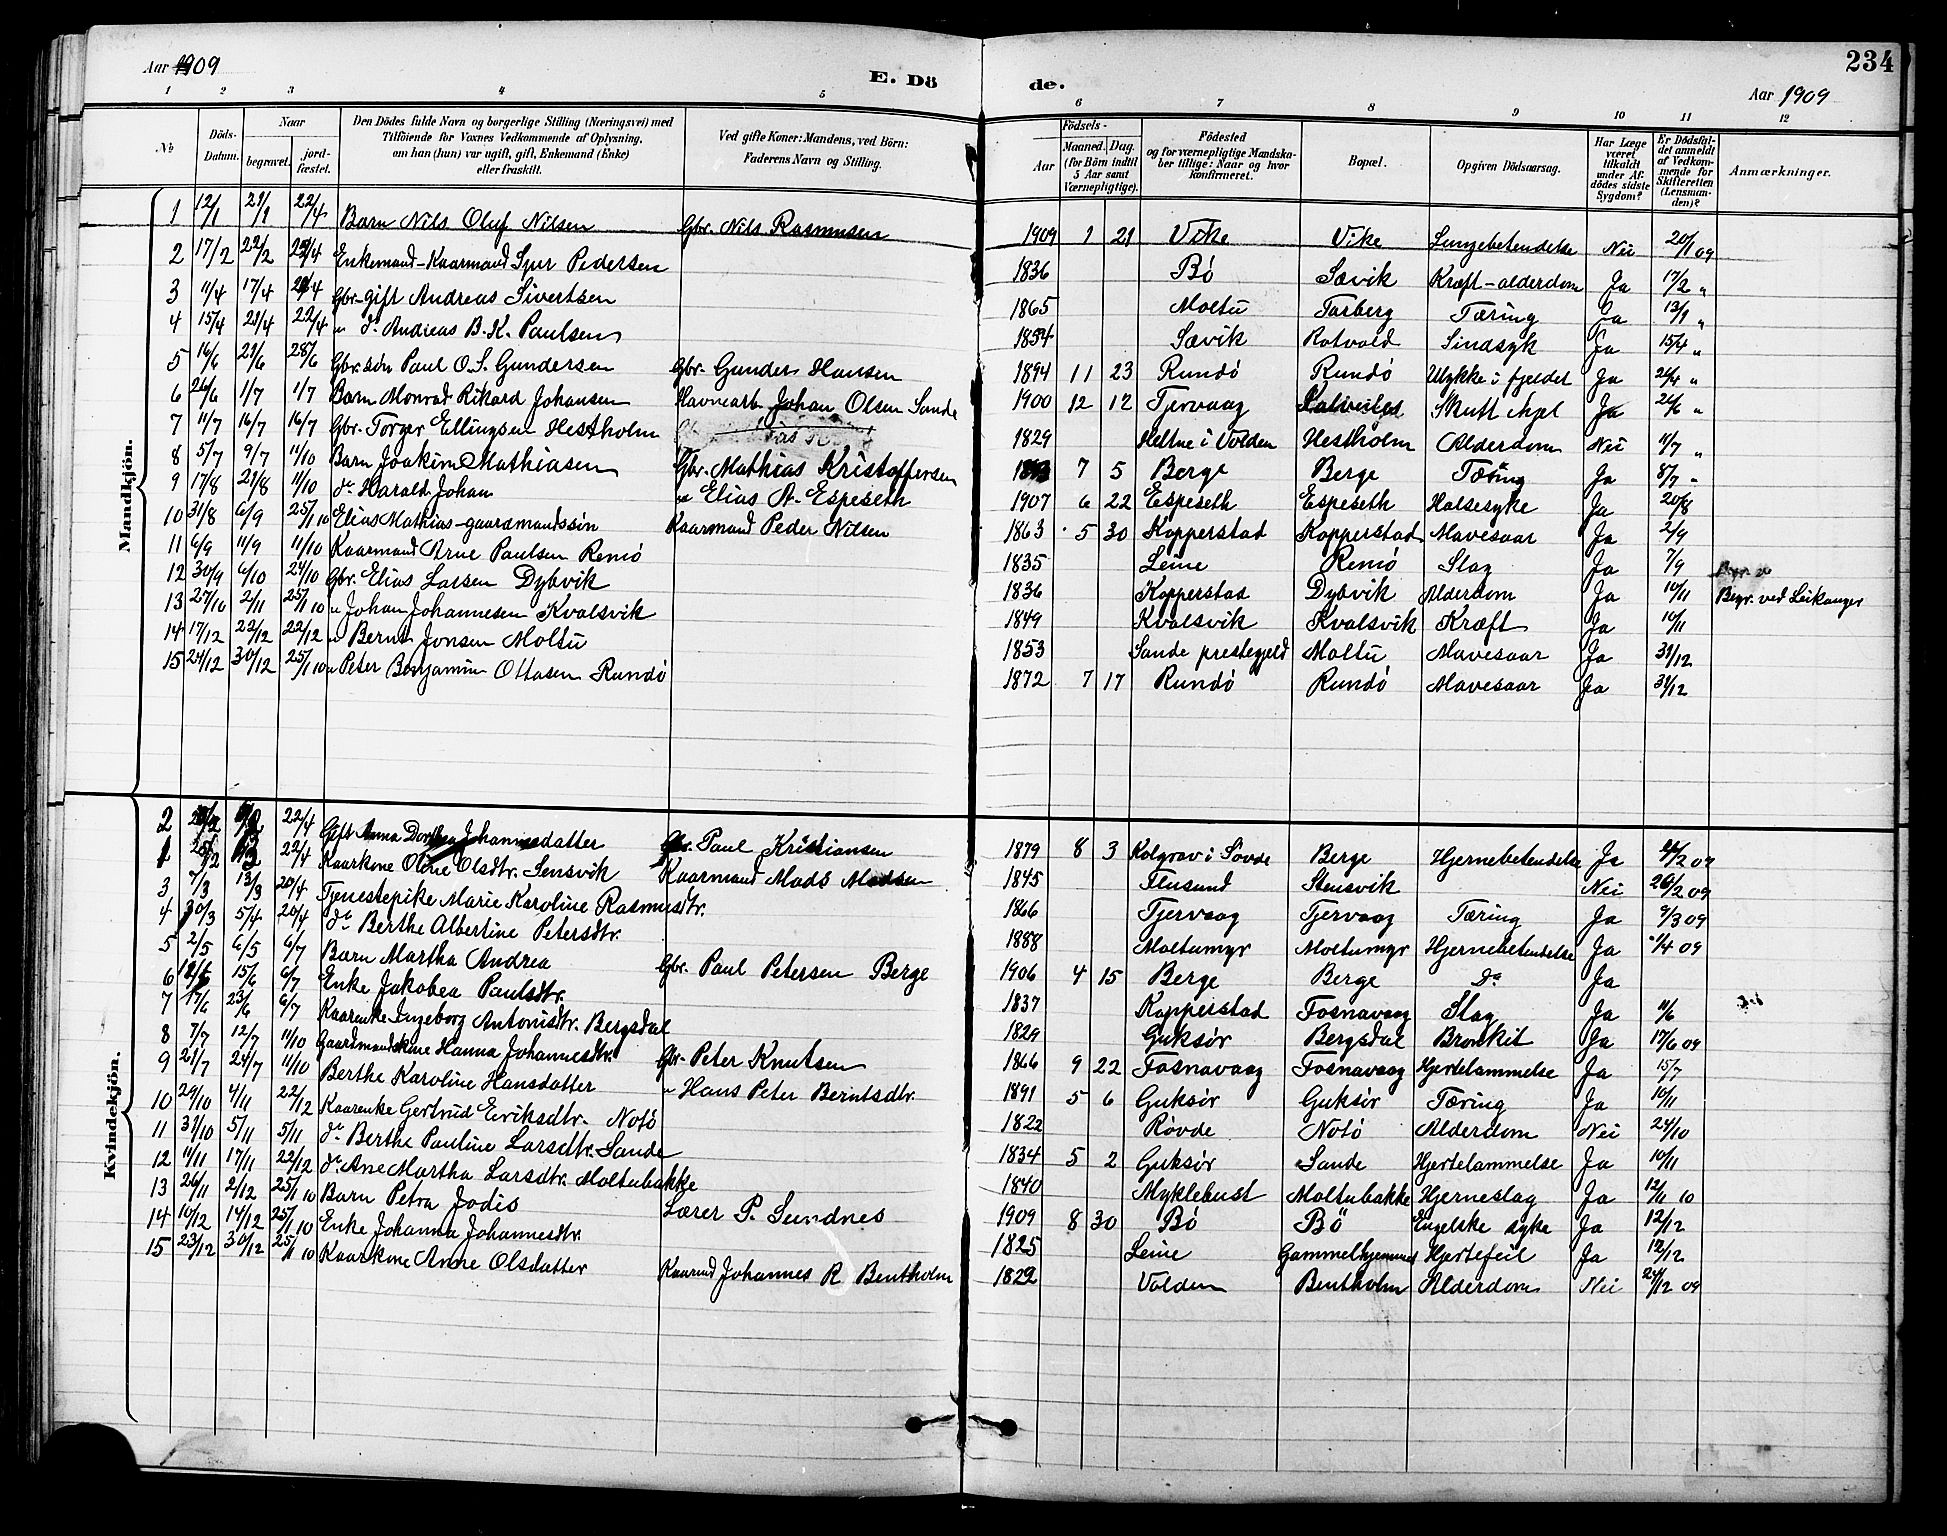 Aar 1909
E. Dö
de.
234
Aar 1909
1 2 3 4 5 6 7 8 9 10 11 12
No. Döds-Datum. Naar begravet. jordfæstet. Den Dödes fulde Navn og borgerlige Stilling (Næringsvei) med Tilföiende for Voxnes Vedkommende af Oplysning, om han (hun) var ugift, gift, Enkemand (Enke) eller fraskilt. Ved gifte Koner: Mandens, ved Börn: Faderens Navn og Stilling. Födsels- Aar Maaned. Dag. (for Börn indtil 5 Aar samt Værnepligtige). Födested og for værnepligtige Mandskaber tillige: Naar og hvor konfirmeret. Bopæl. Opgiven Dödsaarsag. Har Læge været tilkaldt under Afdödes sidste Sygdom? Er Dödsfaldet anmeldt af Vedkommende for Skifteretten (Lensmanden)? Anmærkninger.
Mandkjön.
1 12/1 21/1 22/4 Barn Nils Oluf Nilsen Gbr. Nils Rasmusen 1909 1 21 Vike Vike Lungebetendelse Nei 20/1 09
2 17/2 22/2 22/4 Enkemand-Kaarmand Sjur Pedersen 1836 Bø Sævik Kræft-alderdom Ja 17/2 "
3 11/4 17/4 22/4 Gbr-gift Andreas Sivertsen 1865 Moltu Tarberg Tæring Ja 13/1 "
4 15/4 21/4 22/4 " do Andreas B. K. Paulsen 1854 Sævik Rotvold Sindsyk Ja 15/4 "
5 16/6 21/6 28/6 Gbr.søn Paul O. S. Gundersen Gbr. Gunder Hansen 1894 11 23 Rundö Rundö Ulykke i fjeldet Ja "
6 26/6 1/7 1/7 Barn Monrad Rikard Johansen Havnearb. Johan Olsen Sande 1900 12 12 Tjervaag Ja 26/6 "
7 11/7 16/7 16/7 Gbr. Torger Ellingsen Hestholm 1829 Heltne i Volden Hestholm Alderdom Nei 11/7 "
8 5/7 9/7 11/10 Barn Joakim Mathiasen Gbr. Mathias Kristoffersen 7 5 Berge Berge Tæring Ja 8/7 "
9 17/8 21/8 11/10 do Harald Johan " Elias A. Espeseth 1907 6 22 Espeseth Espeseth Halsesyke Ja 20/8
10 31/8 6/9 25/1 10 Elias Mathias-gaardmandssön Kaarmand Peder Nilsen 1863 5 30 Kopperstad Kopperstad Mavesaar Ja 2/9
11 6/9 11/9 11/10 Kaarmand Arne Paulsen Remö 1835 Leine Remö Slag Ja 7/9
12 30/9 6/10 24/10 Gbr. Elias Larsen Dybvik 1836 Kopperstad Dybvik Alderdom Ja 10/11 Begr. ved Leikanger
13 27/10 2/11 25/1 10 " Johan Johannesen Kvalsvik 1849 Kvalsvik Kvalsvik Kræft Ja 10/11
14 17/12 22/12 22/12 " Bernt Jonsen Moltu 1853 Sande prestegjeld Moltu Mavesaar Ja 31/12
15 24/12 30/12 25/1 10 " Peter Benjamin Ottosen Rundö 1872 7 17 Rundö Rundö Mavesaar Ja 31/12
Kvindekjön.
2 22/4 Gift Anna Dorthea Johannesdatter Gbr. Paul Kristiansen 1879 8 3 Kolgrav i Søvde Berge Hjernebetendelse Ja
1 22/4 Kaarkone Oline Olsdtr. Sensvik Kaarmand Mads Madsen 1845 Flusund Stensvik Nei 26/2 09
3 7/3 13/3 20/4 Tjenestepike Marie Karoline Rasmusdtr. 1866 Tjervaag Tjervaag Tæring Ja 9/3 09
4 30/3 5/4 20/4 do Berthe Albertine Petersdtr. 1888 Moltumyr Moltumyr Hjernebetendelse Ja 1/4 09
5 2/5 6/5 6/7 Barn Martha Andrea Gbr. Paul Petersen Berge 1906 4 15 Berge Berge Do Ja
6 15/6 6/7 Enke Jakobea Paulsdtr. 1837 Kopperstad Fosnavaag Slag Ja 11/6
7 17/6 23/6 6/7 Kaarenke Ingeborg Antonisdtr. Bergsdal 1829 Guksör Bergsdal Bronkit Ja 17/6 09
8 7/7 12/7 11/10 Gaardmandskone Hanna Johannesdtr. Gbr. Peter Knutsen 1866 9 22 Fosnavaag Fosnavaag Hjertelammelse Ja 15/7
9 21/7 24/7 11/10 Berthe Karoline Hansdatter " Hans Peter Berntsdtr. 1891 5 6 Guksör Guksör Tæring Ja 10/11
10 29/10 4/11 22/12 Kaarenke Gertrud Eeriksdtr. Notö 1822 Røvde Notö Alderdom Nei 24/10
11 31/10 5/11 5/11 do Berthe Pauline Larsdtr. Sande 1834 5 2 Guksör Sande Hjertelammelse Ja 10/11
12 11/11 17/11 22/12 do Ane Martha Larsdtr. Moltubakke 1840 Myklebust Moltubakke Hjerneslag Ja 12/11 10
13 26/11 2/12 25/1 10 Barn Petra Jodis Lærer P. Sundnes 1909 8 30 Bø Bö Engelske syke Ja 12/12
14 10/12 14/12 25/1 10 Enke Johanna Johannesdtr. 1825 Leine Gammelhjemmet Hjertefeil Ja 12/12
15 23/12 30/12 25/1 10 Kaarkone Anne Olsdatter Kaarmd Johannes R. Bentholm 1829 Volden Bentholm Alderdom Nei 24/12 09